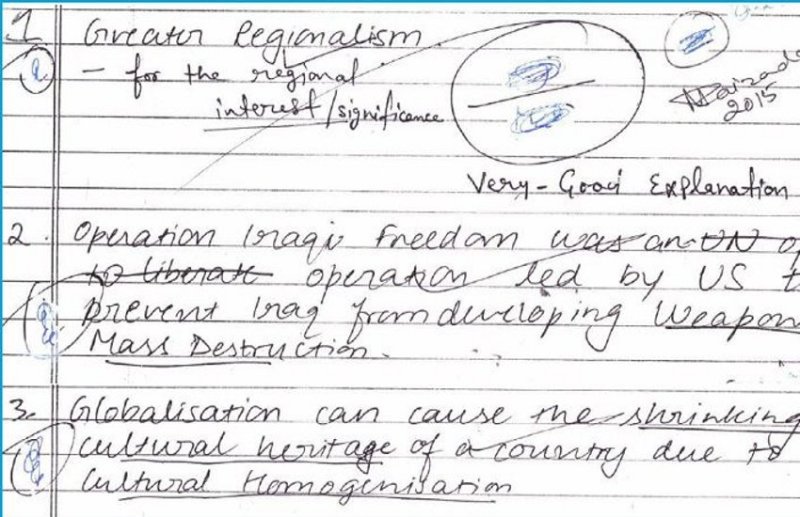 1 Greater Regionalism.
- for the regional
interest/significance
2015
Very-Good Explanation
2. Operation Iraqi Freedom was an UN
to liberate operation led by US
prevent Iraq from developing Weapon
Mass Destruction.
3. Globalisation can cause the shrinking
cultural heritage of a country due to
Cultural Homogenisation